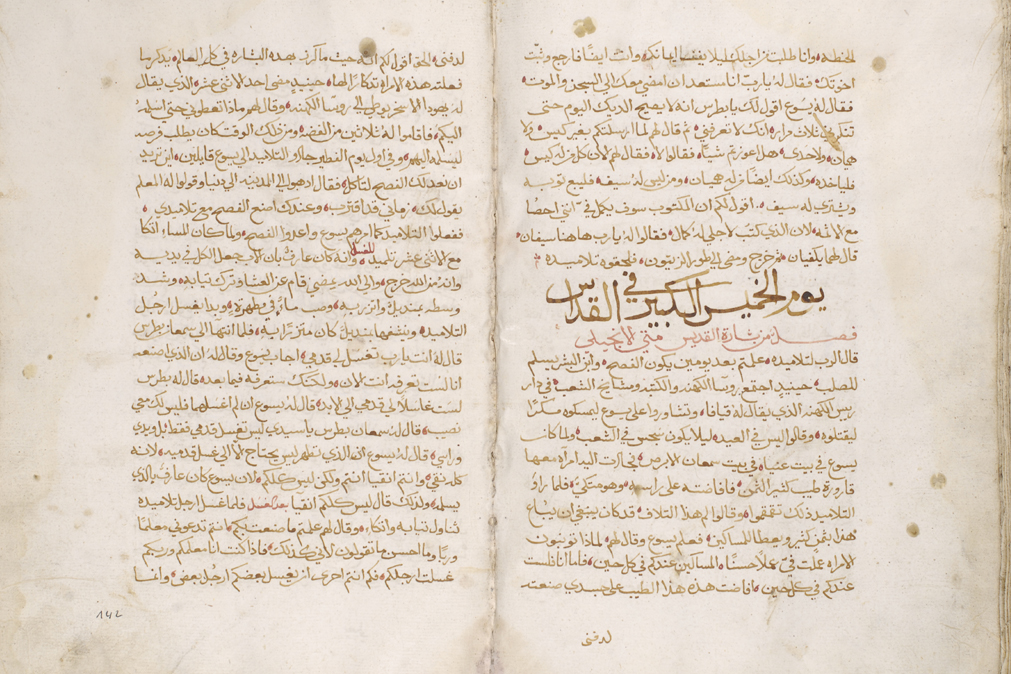 للحنطه وانا طلبت من اجلك ليلا ينقص ايمانك وانت ايضًا فارجع وثبت
اخوتك فقال له يا رب انا مستعد ان امضي معك الى السجن والموت
فقال له يسوع اقول لك يا بطرس انه لا يصيح الديك اليوم حتى
تنكرني ثلاث مرار انك لا تعرفني ثم قال لهم لما ارسلتكم بغير كيس ولا
هميان ولا حدى هل اعوزتم شيًا فقالوا لا فقال لهم لان كل من له كيس
فلياخده وكذلك ايضًا من له هميان ومن ليس له سيف فليبع ثوبه
ويشتري له سيف اقول لكم ان المكتوب سوف يكمل في انني احصا
مع الاثمه لان الذي كتب لاجلي له كمال فقالوا له يا رب ها هنا سيفان
قال لهما يكفيان فخرج ومضى الى طور الزيتون فلحقوه تلاميذه
يوم الخميس الكبير في القداس
فصل من بشارة القديس متى الانجيلي
قال الرب لتلاميذه علمتم بعد يومين يكون الفصح وابن البشر يسلم
للصلب حينيدٍ اجتمع روسا الكهنه والكتبه ومشايخ الشعب في دار
ريس الكهنه الذي يقال له قيافا وتشاوروا على يسوع ليمسكوه مكرًا
ليقتلوه وقالوا ليس في العيد ليلا يكون سجس في الشعب ولما كان
يسوع في بيت عنيا في بيت سمعان الابرص فجات اليه امراة معها
قارورة طيب كثير الثمن فافاضته على راسه وهو متكي فلما راو
التلاميذ ذلك تقمقموا وقالوا لم هذا التلاف قد كان ينبغي ان يباع
هذا بثمن كثير ويعطا للمساكين فعلم يسوع وقال لهم لماذا تونبون
الامراه عملت فيّ عملًا حسنًا المساكين عندكم في كل حين فاما انا فلست
عندكم في كل حين ما فاضت هذه هذا الطيب على جسدي صنعت
لدفني
لدفني الحق اقول لكم انه حيث ما كرز هذه البشاره في كل العالم يذكر بما
فعلته هذه الامراه تذكارًا لها حينيدٍ مضى احد الاثنى عشر الذي يقال
له يهودا الاسخريوطي الى روسا الكهنه وقال لهم ماذا تعطوني حتى اسلمه
اليكم فاقاموا له ثلاثين من الفضه ومن ذلك الوقت كان يطلب فرصه
ليسلمه اليهم وفي اول يوم الفطير جاوا التلاميذ الى يسوع قايلين اين تريد
ان نعد لك الفصح لتاكل فقال ادهبوا الى المدينه الى دنيا وقولوا له المعلم
يقول لك زماني قد اقترب وعندك اصنع الفصح مع تلاميذي
ففعلوا التلاميذ كما امرهم يسوع واعدوا الفصح ولما كان المساء اتكا
مع الاثنى عشر تلميذ للغسل وانه كان عارف بان الاب جعل الكل في يديه
وانه من الله خرج والى الله يمضي قام عن العشا وترك ثيابه وشد
وسطه بمنديل واتزر به وصب ماءً في مطهرة وبدا يغسل ارجل
التلاميذ وينشفها بمنديل كان متزرًا به فلما انتها الى سمعان بطرس
قال له انت يا رب تغسل لي قدمي اجاب يسوع وقال له ان الذي اصنعه
انا لست تعرفه انت الان ولكنك ستعرفه فيما بعد قال له بطرس
لست غاسلًا لي قدمي الى الابد قال له يسوع ان لم اغسلهما فليس لك معي
نصيب قال له سمعان بطرس يا سيدي ليس تغسل قدمي فقط بل ويدي
وراسي قال له يسوع انه الذي تطهر ليس يحتاج الا الى غسل قدميه لانه
كله نقي وانتم انقيا انتم ولكن ليس كلكم لان يسوع كان عارف بالذي
يسلمه ولذلك قال ليس كلكم انقيا بعد الغسل فلما غسل ارجل تلاميذه
تناول ثيابه واتكا وقال لهم علمتم ما صنعت بكم انتم تدعوني معلمًا
وربًا وما احسن ما تقولون لاني كذلك فاذا كنت انا معلمكم وربكم
غسلت ارجلكم فكم انتم احرى ان يغسل بعضكم ارجل بعض وانما
142